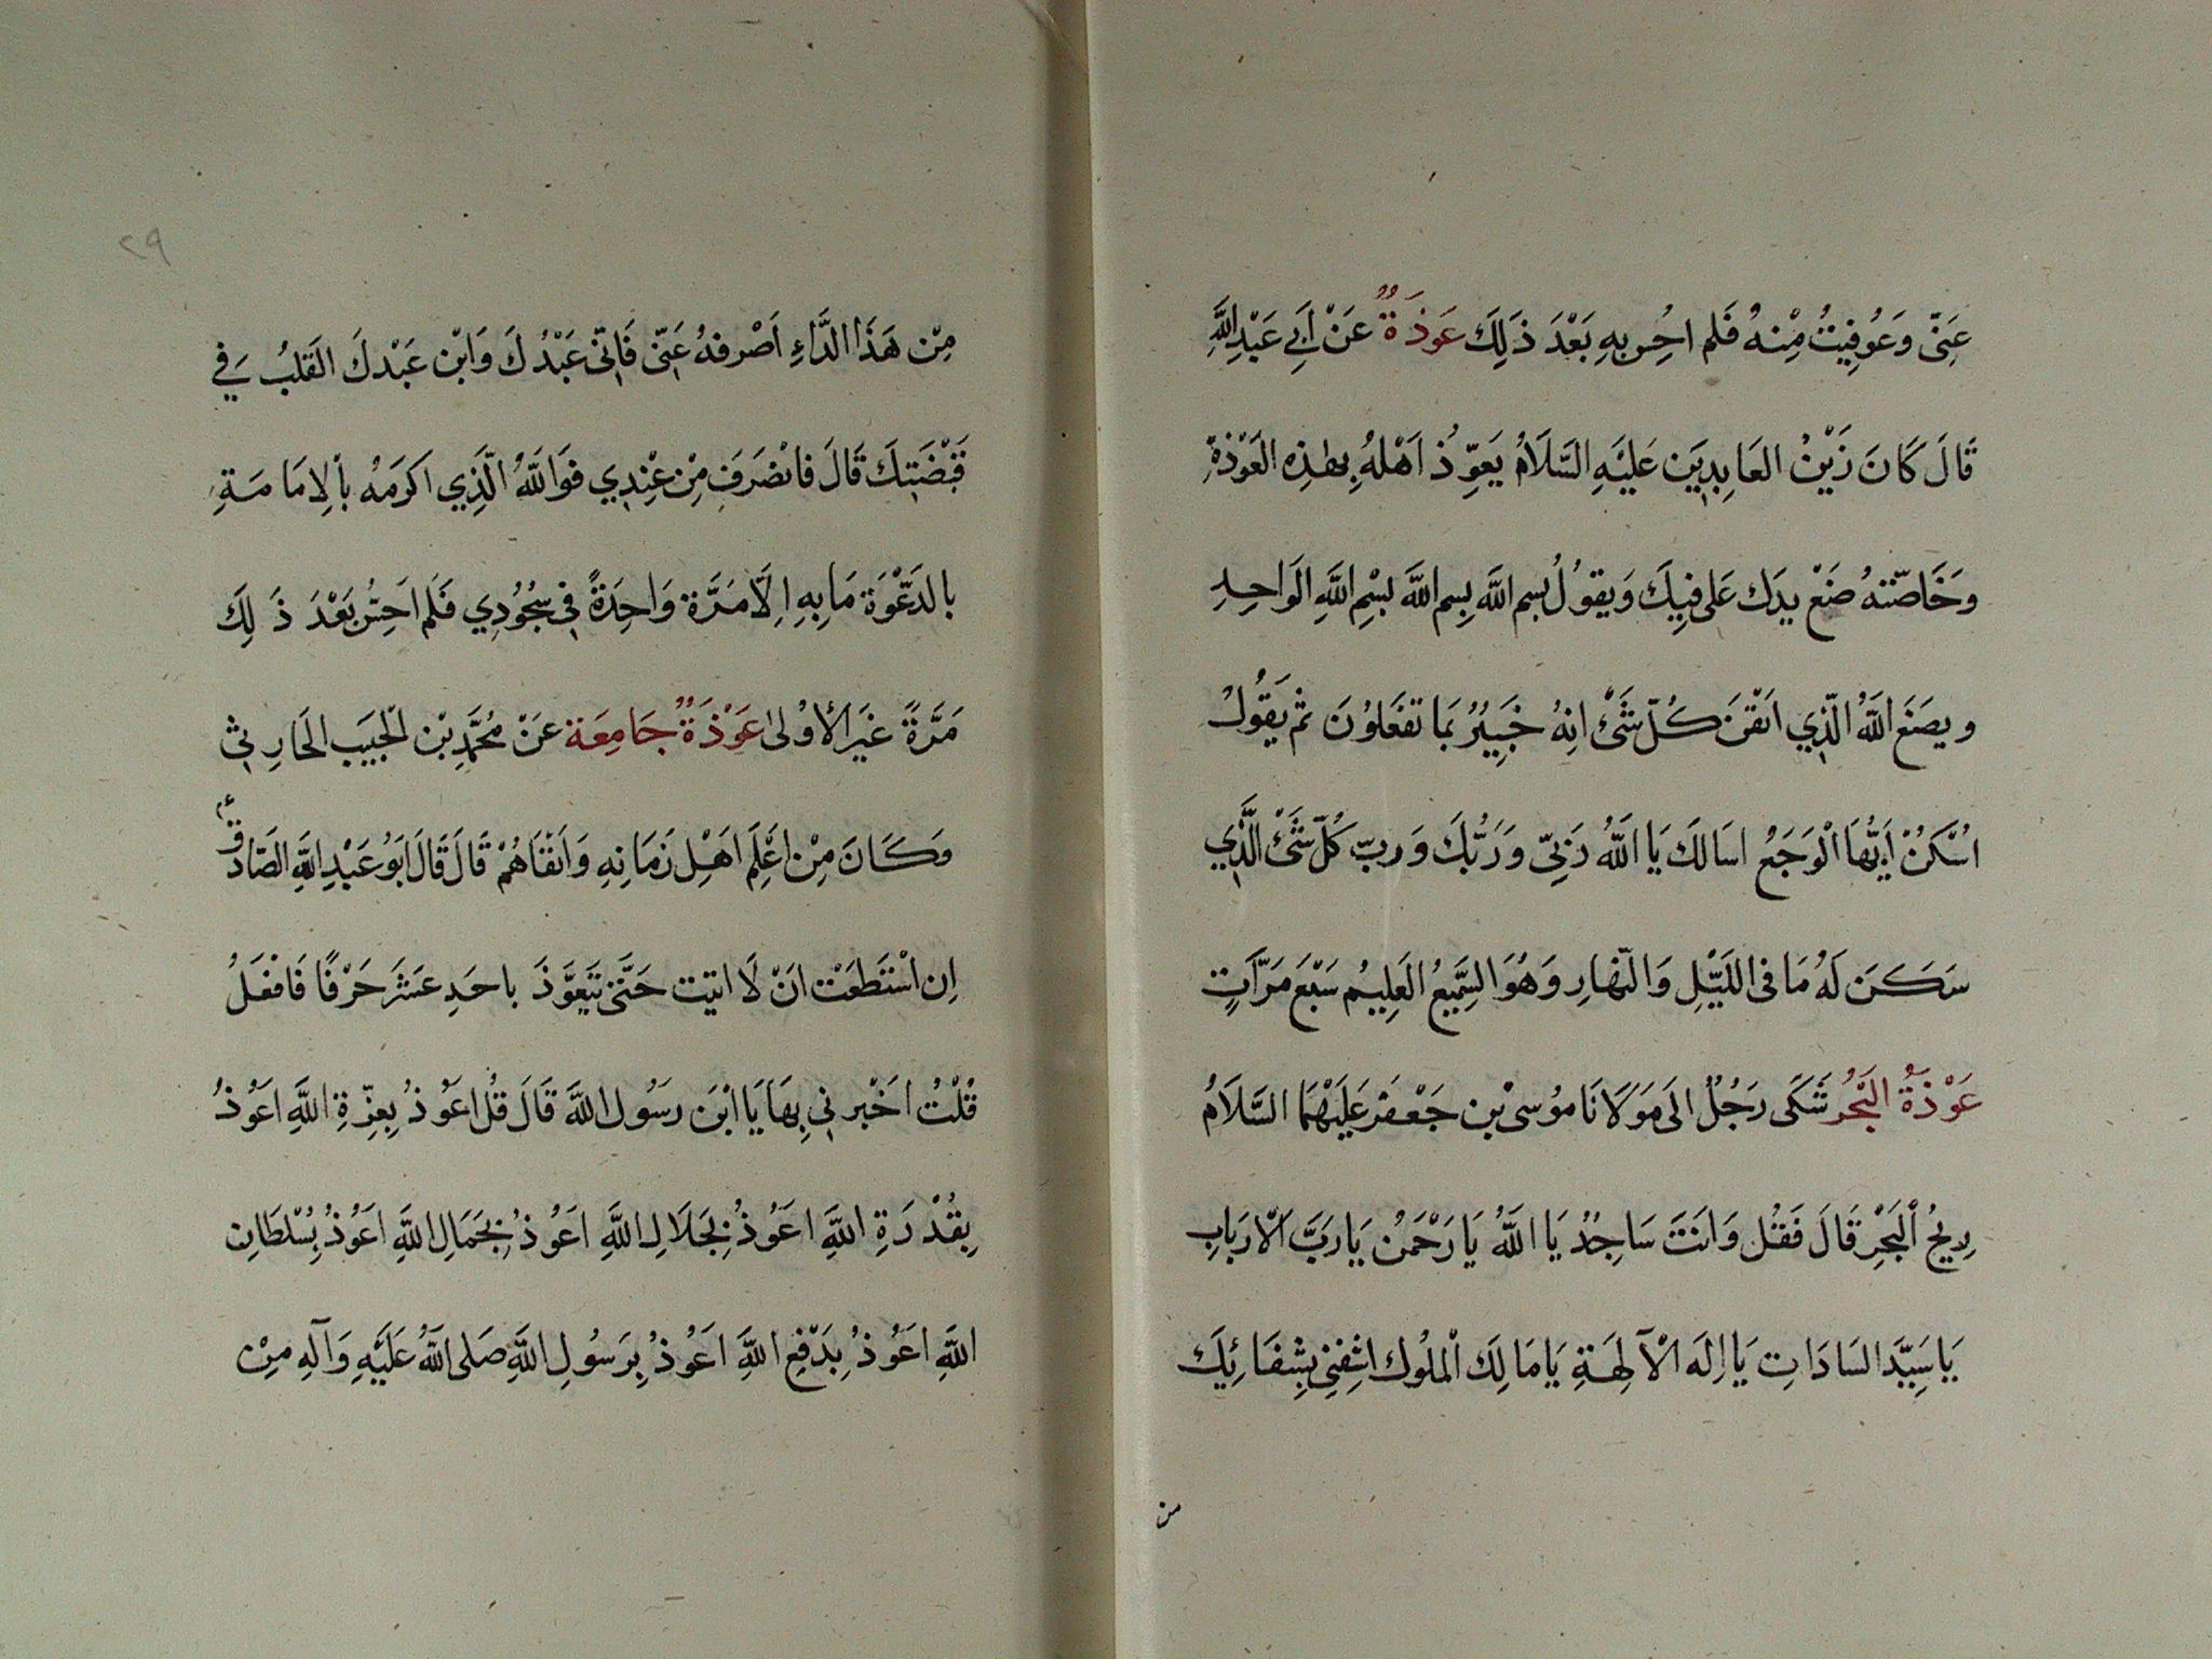 عَنّي وَعُوفِيتُ مِنْهُ فَلم احُس بهِ بَعْدَ ذَلِكَ عَوذَةٌ عَنْ اَبِي عَبْدِ اللَّهِ
قَالَ كَانَ زَيْنُ العَابِدِيَن عَليَهِ السَّلَامُ يَعَوِّذُ اَهْلهُ بهٰذِه العَوْذَة
وَخَاصّتهُ ضَعْ يدَك عَلى فِيكَ وَيقوُلُ بسم اللَّه بِسم اللَّه بسْمِ اللَّهِ الوَاحِدِ
ويصَنَع اللهُ الّذِي اتقْنَ كُلّ شَئْ انِهُ خَبِيرُ بمَا تفعَلوُنَ ثم يَقُولُ
اسْكَنُ اَيّهَا الْوَجَعُ اسَالكَ يَا اللَّهُ رَبِّي وَرَبُّكَ وَربّ كُلّ شَئْ الَّذِي
سَكَنَ لَهُ مَا في اللَيّلِ وَالنّهارِ وَهُوَ السَّمِيعُ العَلِيمُ سَبْعَ مَرّاتٍ
عَوْذَةُ البَحْرُ شَكَى رَجُلٌ الىَ مَوَلَانَا مُوسىْ بن جَعْفَر عَليَهْمَا السَّلَامُ
رِيحُ البَحْرِ قَالَ فَقُل وَانَتَ سَاجِدُ يَا اللَّهُ يَا رَحْمَنُ يَا رَبَّ الْارَبَابِ
يَا سَيِّدَ السَادَاتِ يَا اِلَه الْآلِهَةِ يَا مَالِكَ الْملُوك اشِفنِي بِشِفَائِكَ
من
٢٩
مِنْ هَذَا الدَّاءِ اَصْرفهُ عَنّي فَانّي عَبْدُكَ وَابْن عَبْدكَ القَلبُ في
قَبْضَتِكَ قَالَ فانصَرَفَ مِن عِنْدِي فوَاللَّهُ الّذِي اكرَمَهُ بالِامَامَةِ
بالدَعّوَة مَا بِهِ اِلّا مَرَّة وَاحِدَةً في سجُوُدِي فَلم احِسّ بَعْدَ ذَلِكَ
مَرَّةً غَيَر الأوُلىٰ عَوْذَةٌ جَامِعَة عَنْ مُحَمَّدِ بْن الجبَيَب الحَارِثي
وَكَانَ مِنْ اعْلِمَ اهِل زَمَانِهِ وَاَتقَاهُمْ قَالَ قَالَ ابَوُ عَبْدِ اللَّهِ الصَّادقُ ع
اِن اسْتَطعَتْ انَ لَا اتيت حَتّى تتَعَوَّذَ باحَدِ عَشَرَ حَرْفًا فَافعَلُ
قُلْتُ اخَبْرني بِهَا يَا ابْنَ رَسُول اللَّهَ قَالَ قُل اعَوُذُ بِعِزّةِ اللَّهِ اعَوُذُ
بِقُدْرَةِ اللَّهِ اعَوُذُ بجَلَالِ اللَّهِ اعَوُذُ بجَمَالِ اللَّهِ اعَوُذُ بسُلْطَانِ
اللَّهِ اعَوُذُ بِدَفْعِ اللَّهِ اعَوُذُ بِرَسُولِ اللَّهِ صَلى اللَّهُ عَليَهِ وَآلِهِ مِنْ